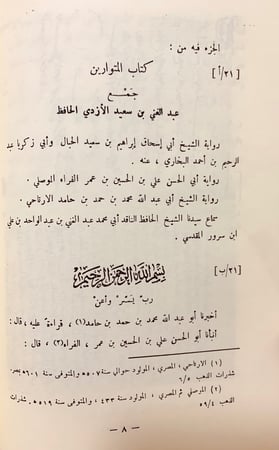 الجزء فيه من :
[٢١/أ] كتاب المتوارين
جمع
عبد الغني بن سعيد الأزدي الحافظ
رواية الشيخ أبي إسحاق إبراهيم بن سعيد الحبال وأبي زكريا عبد
الرحيم بن أحمد البخاري ، عنه .
رواية أبي الحسن علي بن الحسين بن عمر الفراء الموصلي .
رواية الشيخ أبي عبد الله محمد بن حمد بن حامد الارتاحي .
سماع سيدنا الشيخ الحافظ الناقد أبي محمد عبد الغني بن عبد الواحد بن علي
ابن سرور المقدسي .
[٢١/ب] بسم الله الرحمن الرحيم
رب يَسِّر وأعن
أخبرنا أبو عبد الله محمد بن حمد بن حامد(١) ، قراءةً عليه ، قال :
أنبأنا أبو الحسن علي بن الحسين بن عمر ، الفراء(٢) ، قال :
(١) الارتاحي ، المصري ، المولود حوالي سنة ٥٠٧ والمتوفى سنة ٦٠١ بمصر.
شذرات الذهب ٦/٥
(٢) الموصلي ثم المصري ، المولود سنة ٤٣٣ ، والمتوفى سنة ٥١٩. شذرات
الذهب ٥٩/٤
– ٨ –